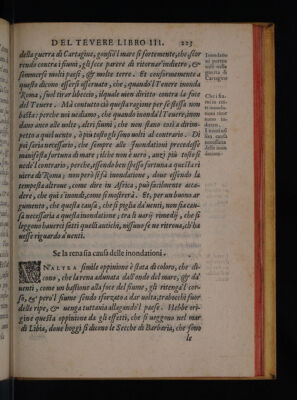 DEL TEVERE LIBRO III. 223
della guerra di Cartagine, gonfiò'l mare sì fortemente, che stor
rendo contra i fiumi, gli fece parere di ritornar'indietro, &
sommerse molti paesi, & molte terre. Et conformemente a
questo dicono essersi osseruato, che, quando'l Teuere innonda
Roma, suol tirar libeccio, ilquale uien diritto contra la foce
del Teuere. Mà contuttociò questa ragione per se stessa non
basta: perche noi uediamo, che quando inonda'l Teuere, inon
dano anco alle uolte, altri fiumi, che non stanno così a dirim
petto a quel uento, ò più tosto gli sono uolti al contrario. Di
poi saria necessario, che sempre alle Inondationi precedesse
manifesta fortuna di mare; ilche non è uero, anzi più tosto si
uede'l contrario, perche, essendo ben spesso fortuna a quelle ri
uiere di Roma; non però si fà inondatione, doue essendo la
tempesta altroue, come dire in Africa, può facilmente acca-
dere, che quì s'inonde, come si mostrerà. Et, per un buono ar
gumento, che questa causa, che si piglia da'uenti, non sia cau-
sa necessaria a questa inondatione; tra li uarij rimedij, che si
leggono hauerci fatti quelli antichi, nissuno se ne ritroua, c'ha
uesse riguardo a'uenti.
Se la rena sia causa delle inondationi.
VN'ALTRA simile oppinione è stata di coloro, che di-
cono, che la rena adunata dall'onde del mare, & da'
uenti, come un bastione alla foce del fiume, gli ritenga'l cor-
so, & però'l fiume sendo sforzato a dar uolta, trabocchi fuor
delle ripe, & uenga tuttauia allagando'l paese. Hebbe ori-
gine questa oppinione da gli effetti, che si ueggono nel mar
di Libia, doue hoggi si dicono le Secche di Barbaria, che sono
le
Inondatio
nella
guerra di
Cartagine